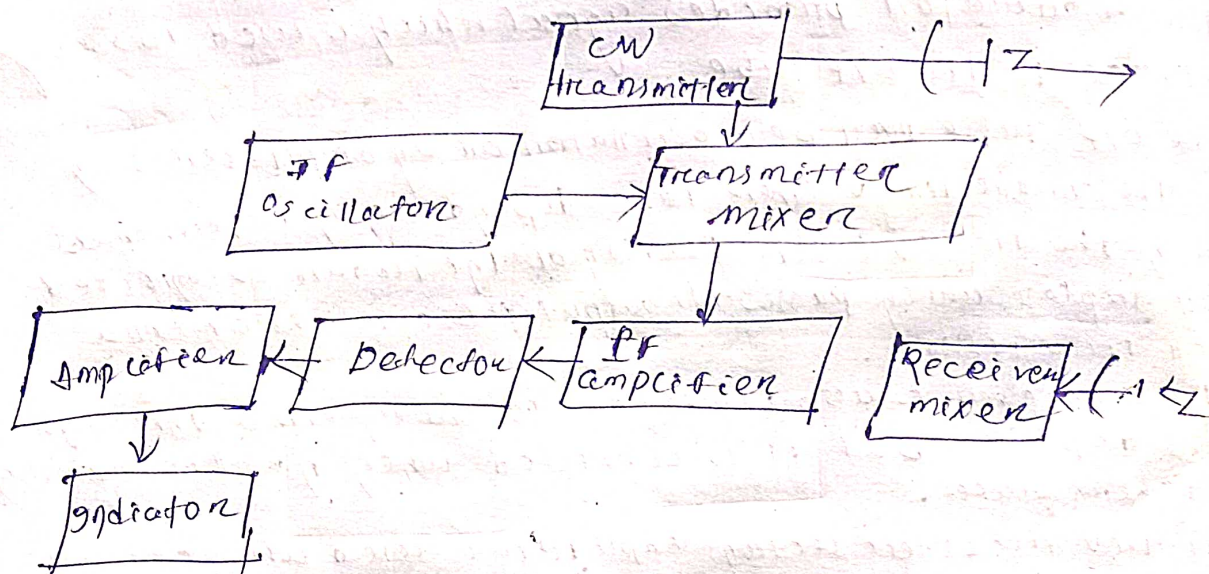 CW
transmitter
IF
oscillator
Transmitter
mixer
Amplifier
Detector
IF
amplifier
Receiver
mixer
Indicator